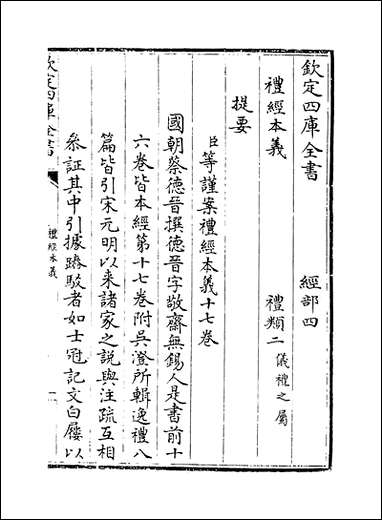 欽定四庫全書 經部四
禮經本義 禮類二儀禮之屬
提要
臣等謹案禮經本義十七卷
國朝蔡德晉撰德晉字敬齋無錫人是書前十
六卷皆本經第十七卷附吳澄所輯逸禮八
篇皆引宋元明以来諸家之說與注疏互相
叅証其中引據踳駁者如士冠記文白屨以
欽定四庫全書
禮經本義
一